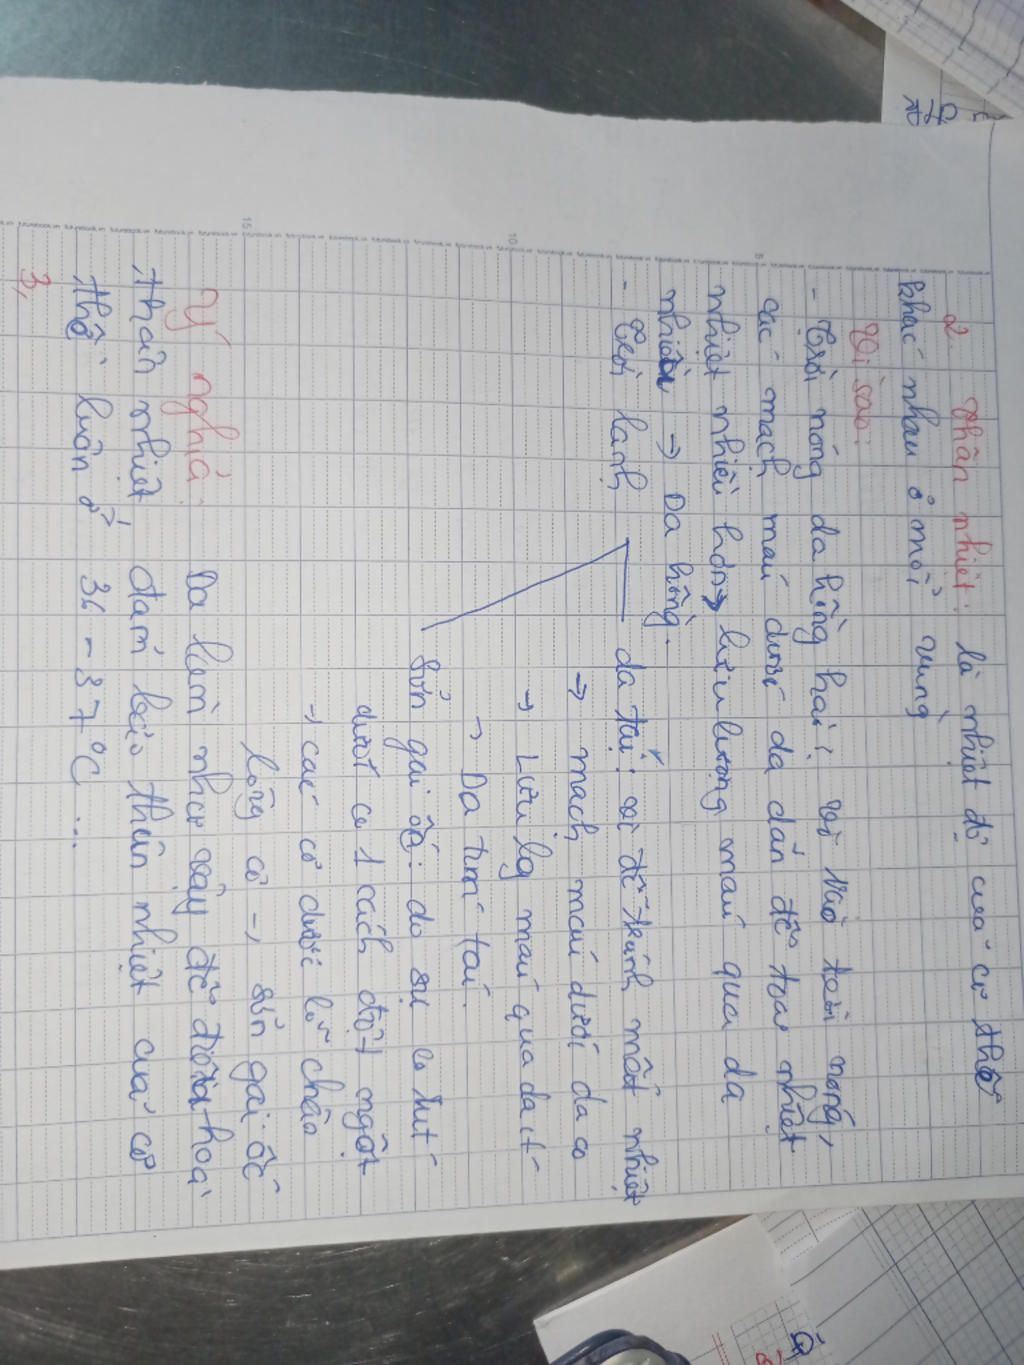 2. Thân nhiệt: là nhiệt độ của cơ thể
khác nhau ở mỗi vùng
Vì sao:
- Trời nóng da hồng hai: vì vào trời nóng,
các mạch máu dưới da dãn để toả nhiệt
nhiệt nhiều hơn → lưu lượng máu qua da
nhiều → Da hồng.
- Trời lạnh da tái: vì để tránh mất nhiệt
→ mạch máu dưới da co
→ Lưu lg máu qua da ít
→ Da tím tái.
Sởn gai ốc: do sự co rút
dưới co 1 cách đột ngột
→ các cơ dưới lỗ chân
lông co → sởn gai ốc
Ý nghĩa: Da làm như vậy để điều hoà
thân nhiệt đảm bảo thân nhiệt của cơ
thể luôn ở 36 - 37°C ...
3,
15
10
5